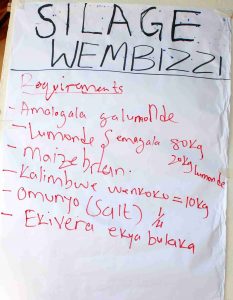 SILAGE
WEMBIZZI
Requirements
- Amalagala galumonde
- Lumonde & emagala 80Kg
20Kg lumonde
- Maize bran.
- Kalimbwe wenkoko = 10Kg
- Omunyo (Salt) 1/2
- Ekivera ekya bulaka